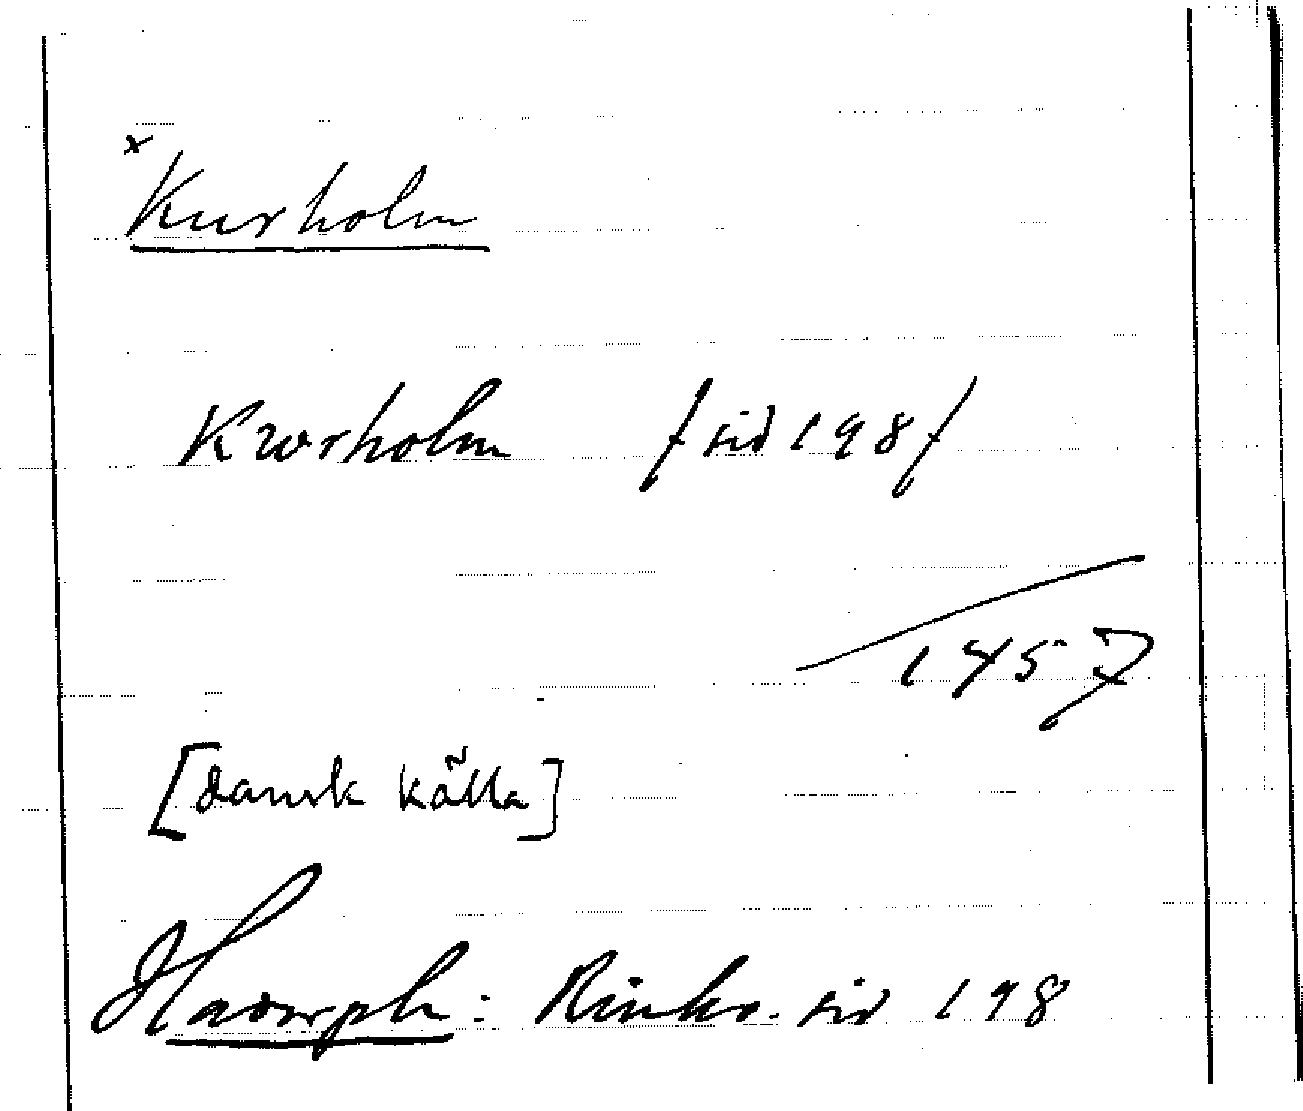 x
Kurholm
Kwrholm /sid 198/
1457
[dansk källa]
Hadorph: Rimkr. sid 198